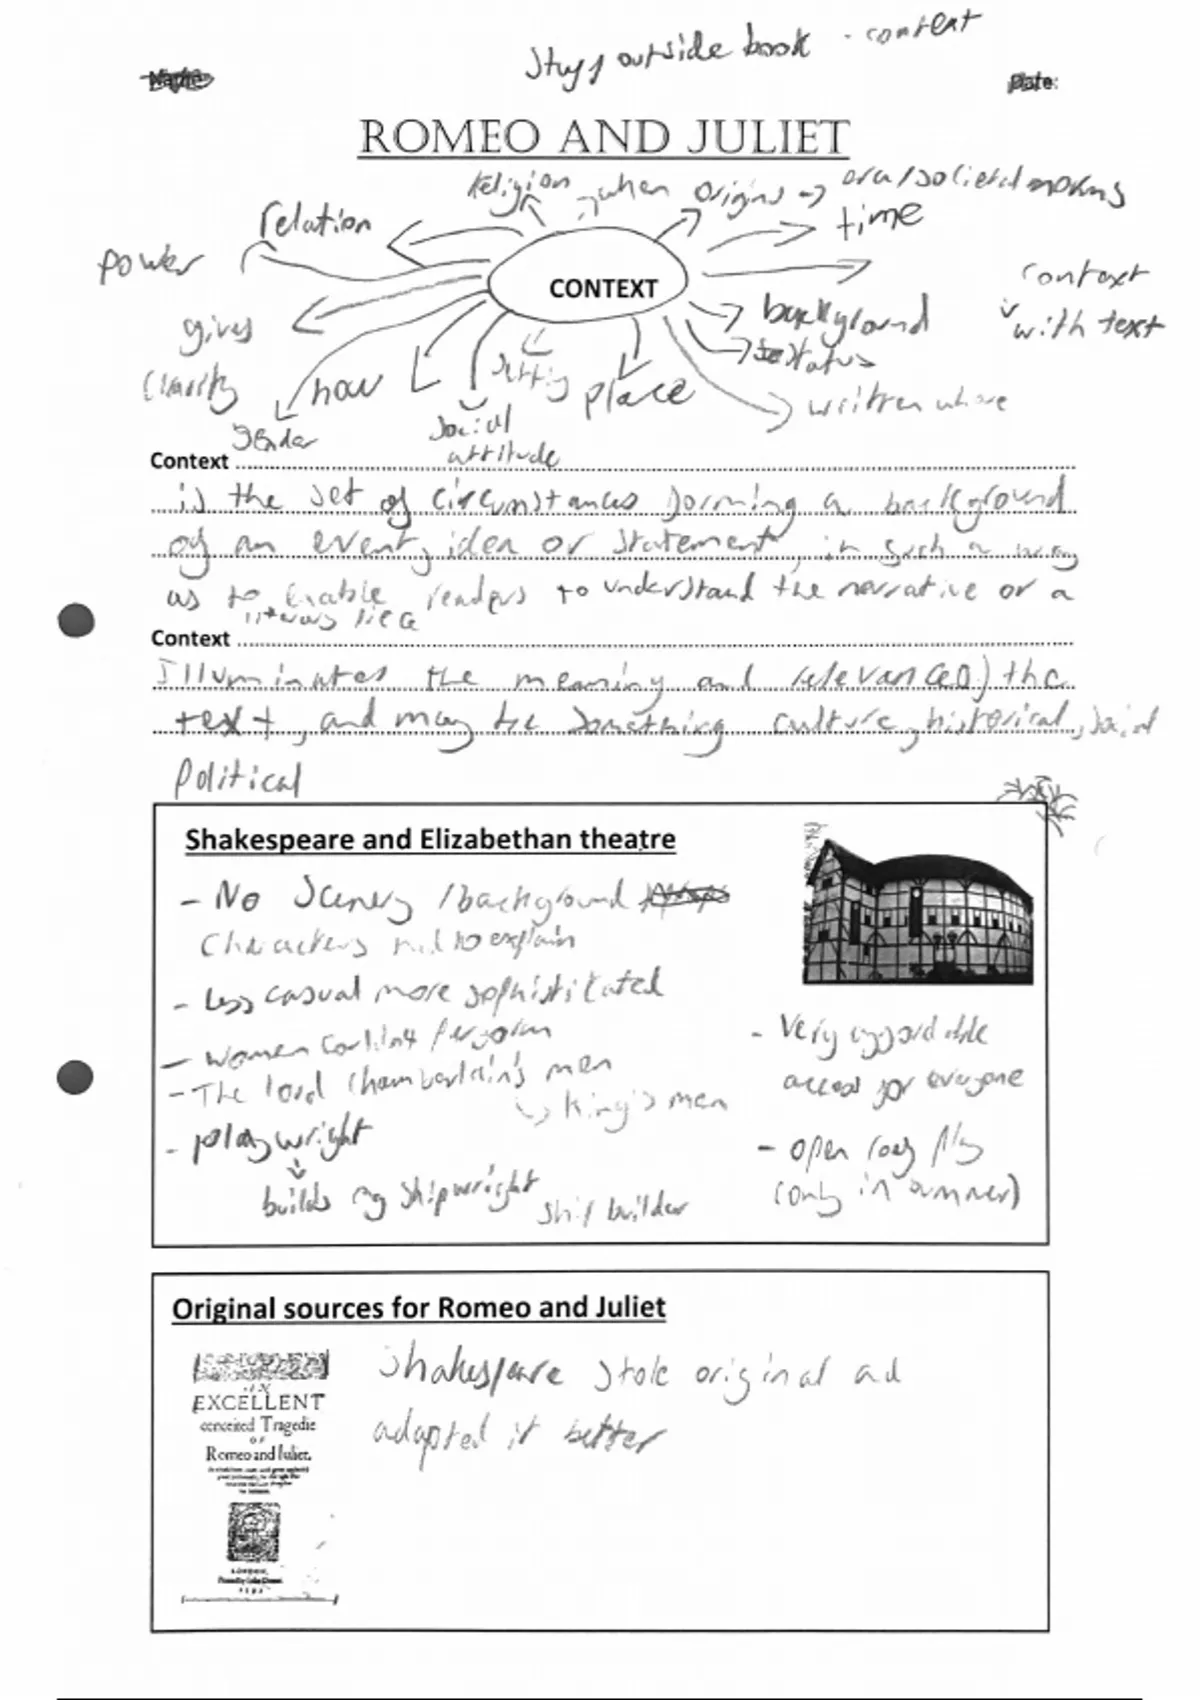 stuff outside book - context
Name:
Date:
ROMEO AND JULIET
Religion
when
origins → era/societal norms
relation
time
power
CONTEXT
context
↓ with text
gives
clarity
background
status
how
setting
place
written where
gender
social
attitude
Context
is the set of circumstances forming a background
of an event, idea or statement, in such a way
as to enable readers to understand the narrative or a
literary piece
Context
Illuminates the meaning and relevance of the
text, and may be something culture, historical, social
Political
Shakespeare and Elizabethan theatre
- No Scenery / background
Characters had to explain
- Less casual more sophisticated
- women couldn't perform
- The lord chamberlain's men
↳ King's men
- playwright
↓
builds eg shipwright ship builder
- Very affordable
access for everyone
- open roof play
(only in summer)
Original sources for Romeo and Juliet
EXCELLENT
conceited Tragedie
OF
Romeo and Iuliet,
LONDON,
Shakespeare stole original and
adapted it better